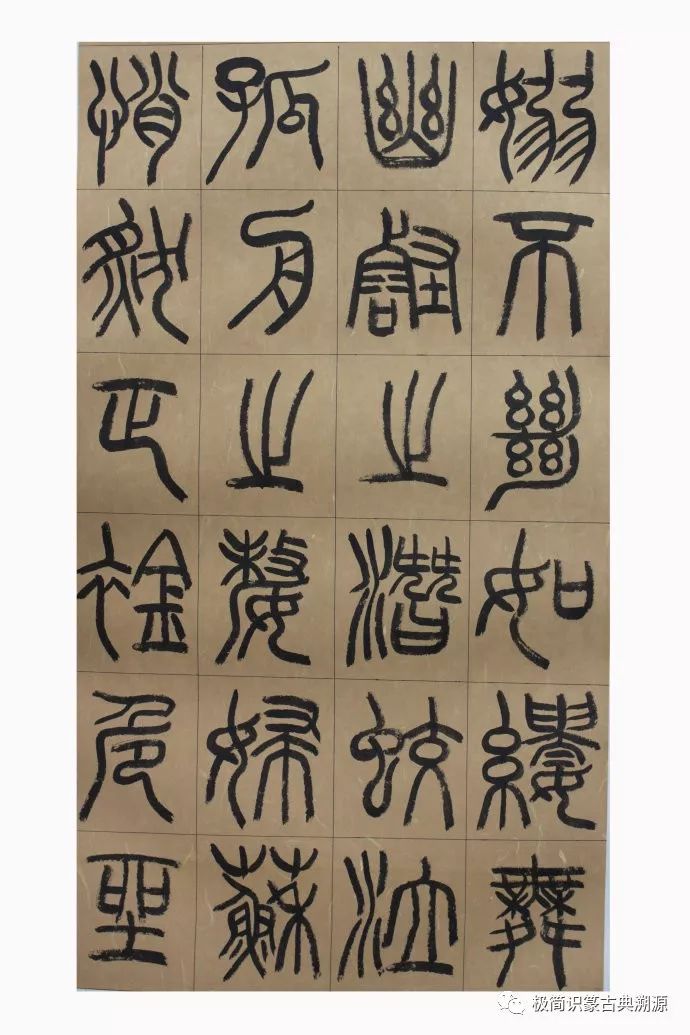 嫋不絕如縷舞
幽壑之潛蛟泣
孤舟之嫠婦蘇
悄然正襟危坐
极简识篆古典溯源